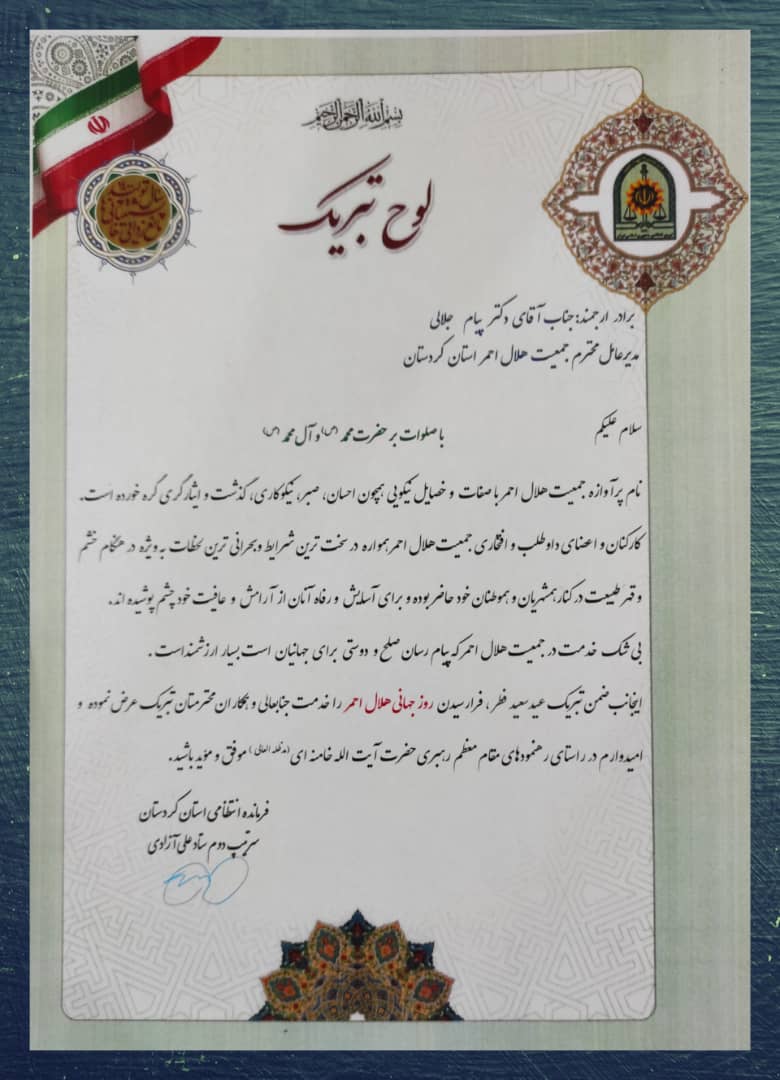 بسم الله الرحمن الرحیم
لوح تبریک
برادر ارجمند: جناب آقای دکتر پیام جلالی
مدیرعامل محترم جمعیت هلال احمر استان کردستان
سلام علیکم
با صلوات بر حضرت محمد (ص) و آل محمد (ص)
نام پرآوازه جمعیت هلال احمر با صفات و خصایل نیکویی همچون احسان، صبر، نیکوکاری، گذشت و ایثارگری گره خورده است.
کارکنان و اعضای داوطلب و افتخاری جمعیت هلال احمر همواره در سخت ترین شرایط و بحرانی ترین لحظات به ویژه در هنگام خشم
و قهر طبیعت در کنار همشهریان و هموطنان خود حاضر بوده و برای آسایش و رفاه آنان از آرامش و عافیت خود چشم پوشیده اند.
بی شک خدمت در جمعیت هلال احمر که پیام رسان صلح و دوستی برای جهانیان است بسیار ارزشمند است.
اینجانب ضمن تبریک عید سعید فطر، فرارسیدن روز جهانی هلال احمر را خدمت جنابعالی و همکاران محترمتان تبریک عرض نموده و
امیدوارم در راستای رهنمودهای مقام معظم رهبری حضرت آیت الله خامنه ای (مدظله العالی) موفق و مؤید باشید.
فرمانده انتظامی استان کردستان
سرتیپ دوم ستاد علی آزادی